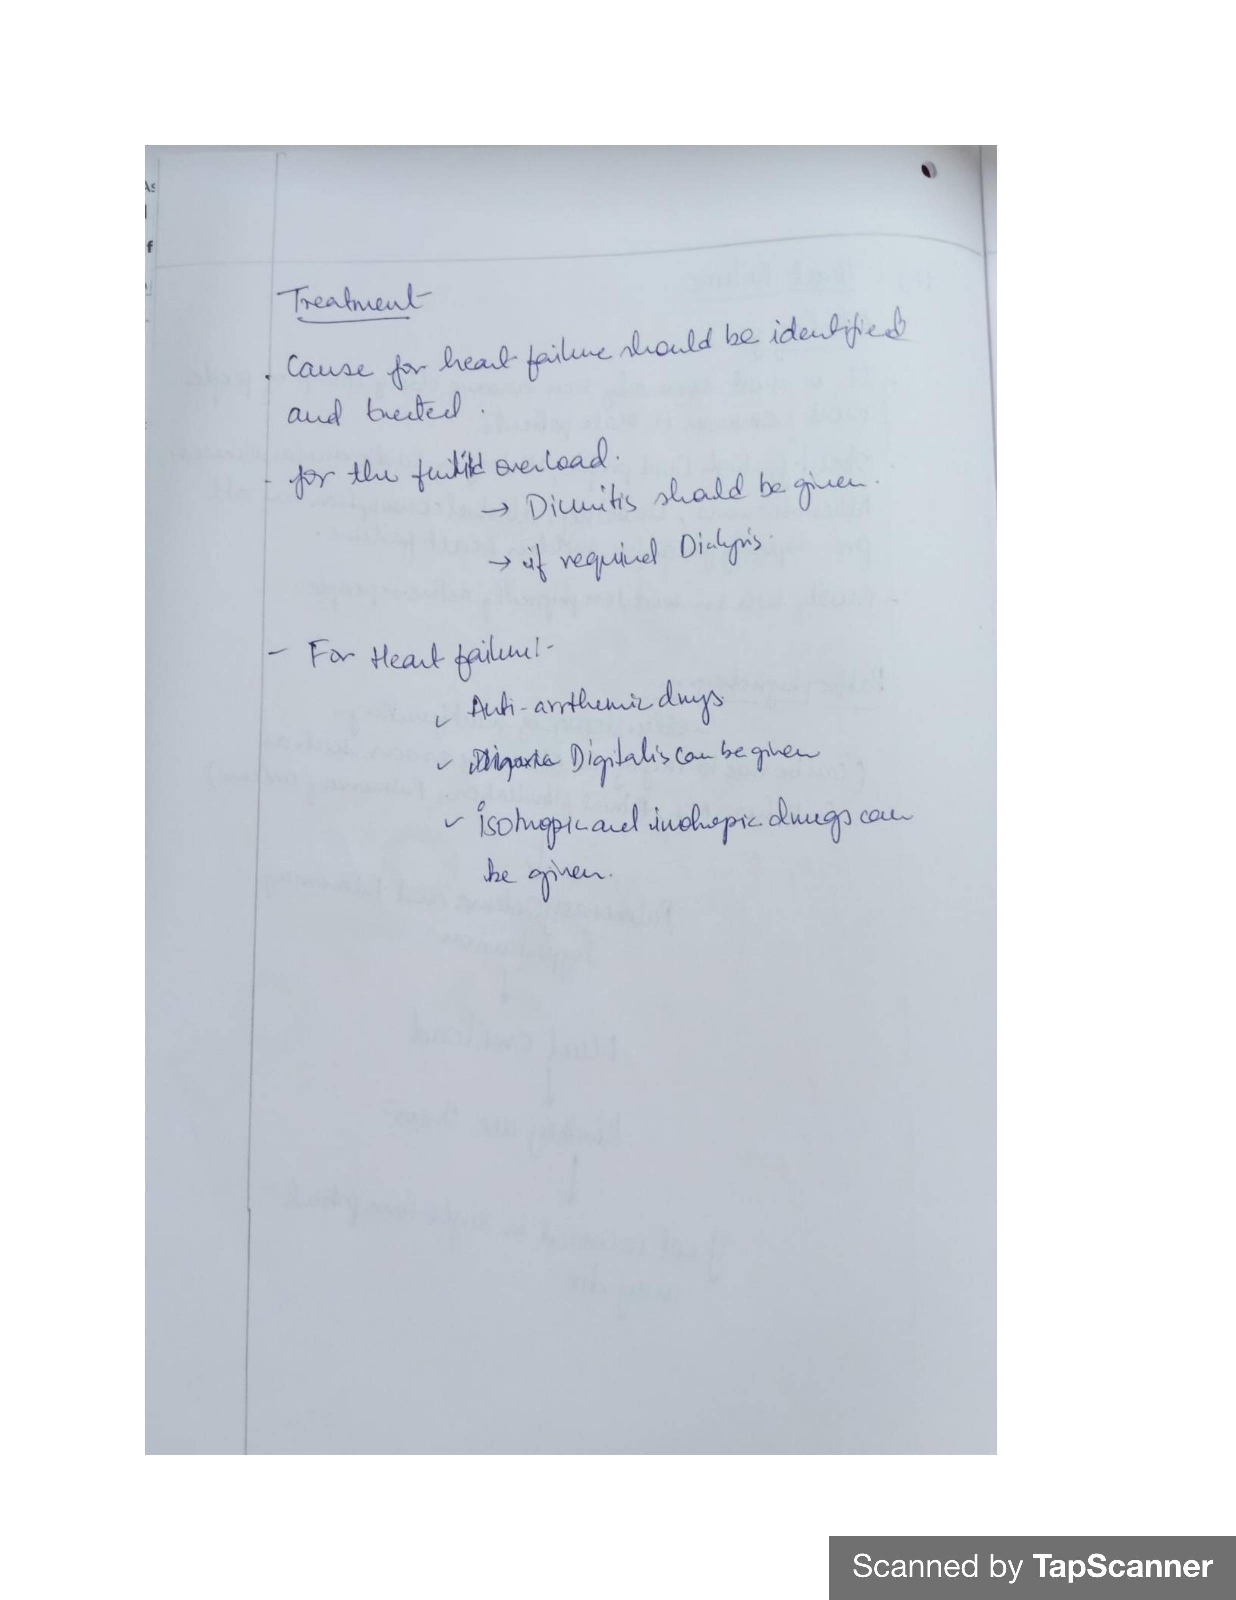 Treatment
. Cause for heart failure should be identified
and treated.
- for the overload.
→ Diuritis should be given.
→ if required Dialysis.
- For Heart failure!-
✓ Anti-arrthemic drugs
✓ Digitalis can be given
✓ isotropic and inotropic drugs can
be given.
Scanned by TapScanner